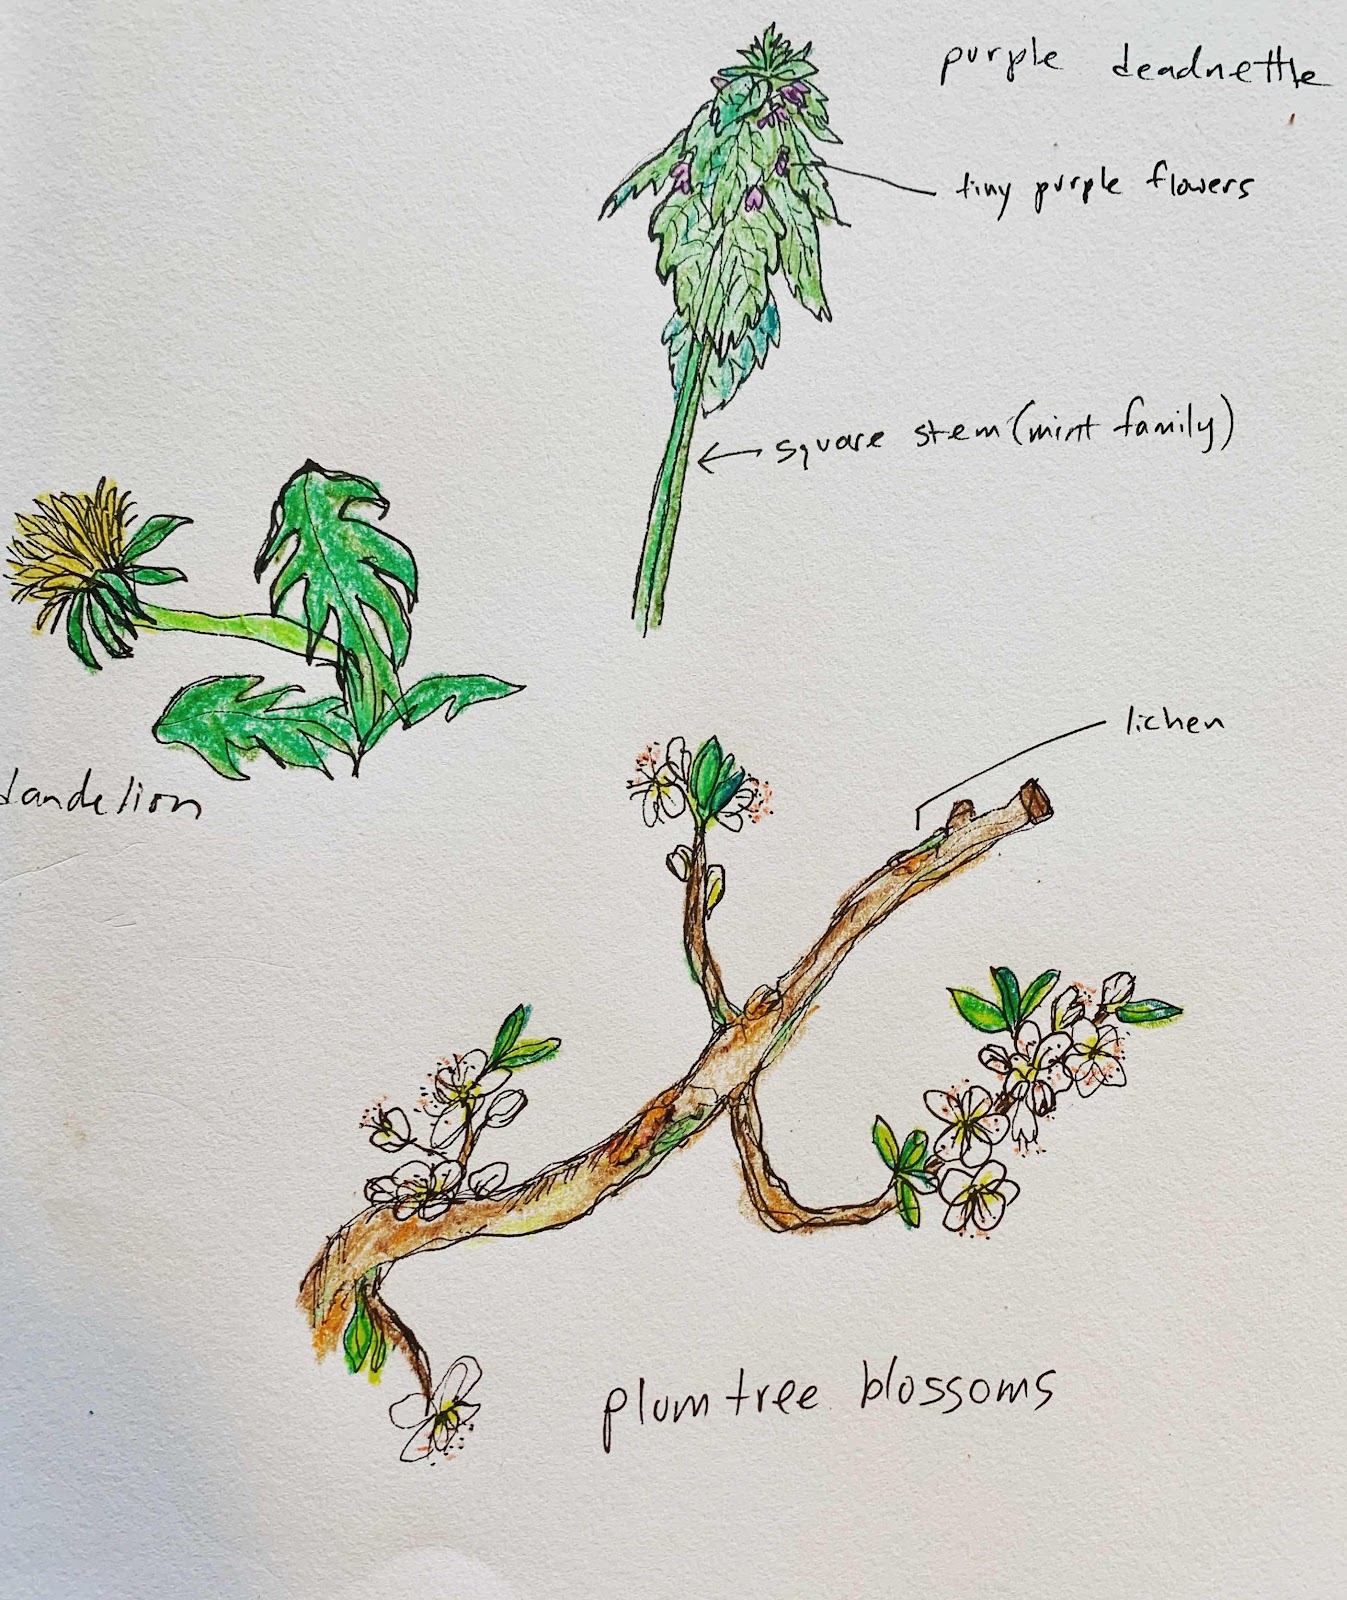 purple deadnettle
tiny purple flowers
square stem (mint family)
dandelion
lichen
plum tree blossoms